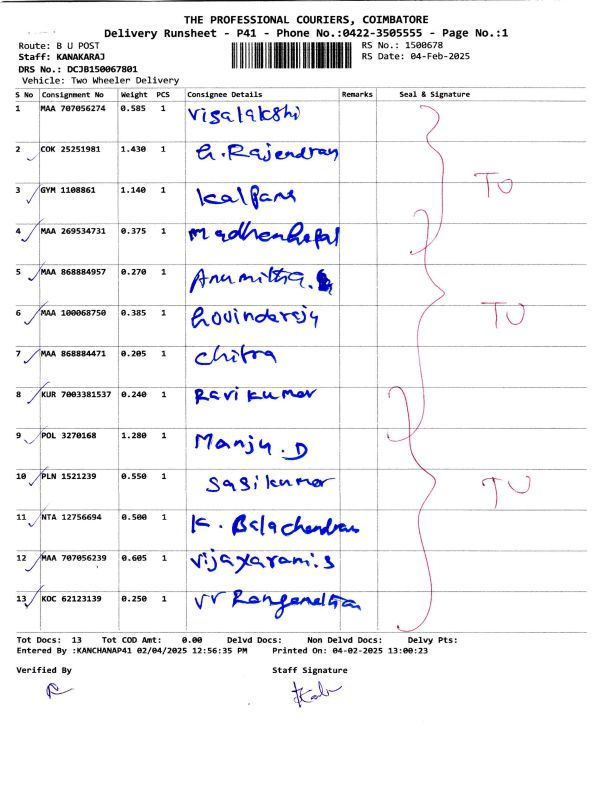 THE PROFESSIONAL COURIERS, COIMBATORE
Delivery Runsheet - P41 - Phone No.:0422-3505555 - Page No.:1
Route: B U POST RS No.: 1500678
Staff: KANAKARAJ RS Date: 04-Feb-2025
DRS No.: DCJB150067801
Vehicle: Two Wheeler Delivery
S No Consignment No Weight PCS Consignee Details Remarks Seal & Signature
1 MAA 707056274 0.585 1 Visalakshi
2 COK 25251981 1.430 1 G. Rajendran
3 GYM 1108861 1.140 1 Kalpana TO
4 MAA 269534731 0.375 1 Madhenhopal
5 MAA 868884957 0.270 1 Anumitha.
6 MAA 100068750 0.385 1 Govindaraju TO
7 MAA 868884471 0.205 1 Chitra
8 KUR 7003381537 0.240 1 Ravi kumar
9 POL 3270168 1.280 1 Manju. D
10 PLN 1521239 0.550 1 Sasikumar TO
11 NTA 12756694 0.500 1 K. Balachandran
12 MAA 707056239 0.605 1 Vijayarani.s
13 KOC 62123139 0.250 1 VV
Tot Docs: 13 Tot COD Amt: 0.00 Delvd Docs: Non Delvd Docs: Delvy Pts:
Entered By :KANCHANAP41 02/04/2025 12:56:35 PM Printed On: 04-02-2025 13:00:23
Verified By Staff Signature